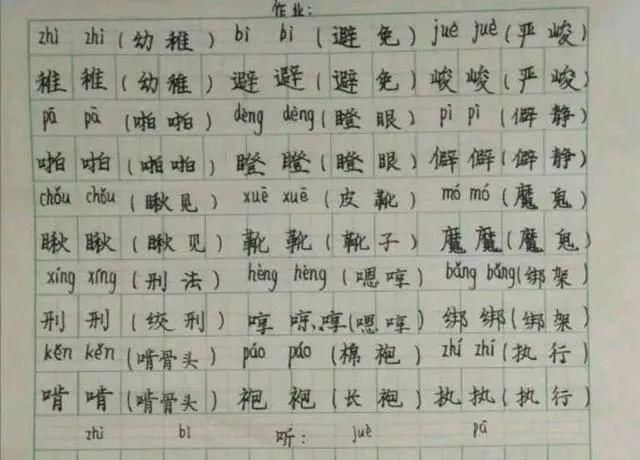 作业:
zhì zhì (幼稚) bì bì (避免) juè juè (严峻)
稚 稚 (幼稚) 避 避 (避免) 峻 峻 (严峻)
pā pā (啪啪) dèng dèng (瞪眼) pì pì (僻静)
啪 啪 (啪啪) 瞪 瞪 (瞪眼) 僻 僻 (僻静)
chǒu chǒu (瞅见) xuē xuē (皮靴) mó mó (魔鬼)
瞅 瞅 (瞅见) 靴 靴 (靴子) 魔 魔 (魔鬼)
xíng xíng (刑法) hèng hèng (嗯哼) bǎng bǎng (绑架)
刑 刑 (绞刑) 哼 哼 (嗯哼) 绑 绑 (绑架)
kěn kěn (啃骨头) páo páo (棉袍) zhí zhí (执行)
啃 啃 (啃骨头) 袍 袍 (长袍) 执 执 (执行)
zhì bì 听: juè pā